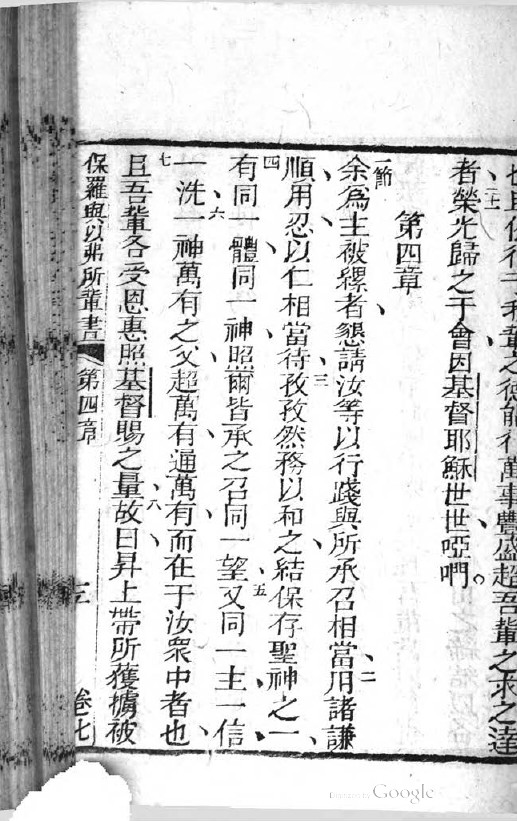 之德能行萬事豐盛超吾輩之求之達
者榮光歸之于會因基督耶穌世世啞唎。
二十一
第四章
一節
余為主被縲者懇請汝等以行踐與所承召相當、用諸謙
二
順用忍以仁相當待孜孜然務以和之結保存聖神之一、
三
有同一體同一神照爾皆承之召同一望又同一主一信
四
五
一洗一神萬有之父超萬有通萬有而在于汝衆中者也
六
且吾輩各受恩惠照基督賜之量、故曰昇上帶所獲擄被
七
八
保羅與以弗所輩書 第四章
卷七
Google